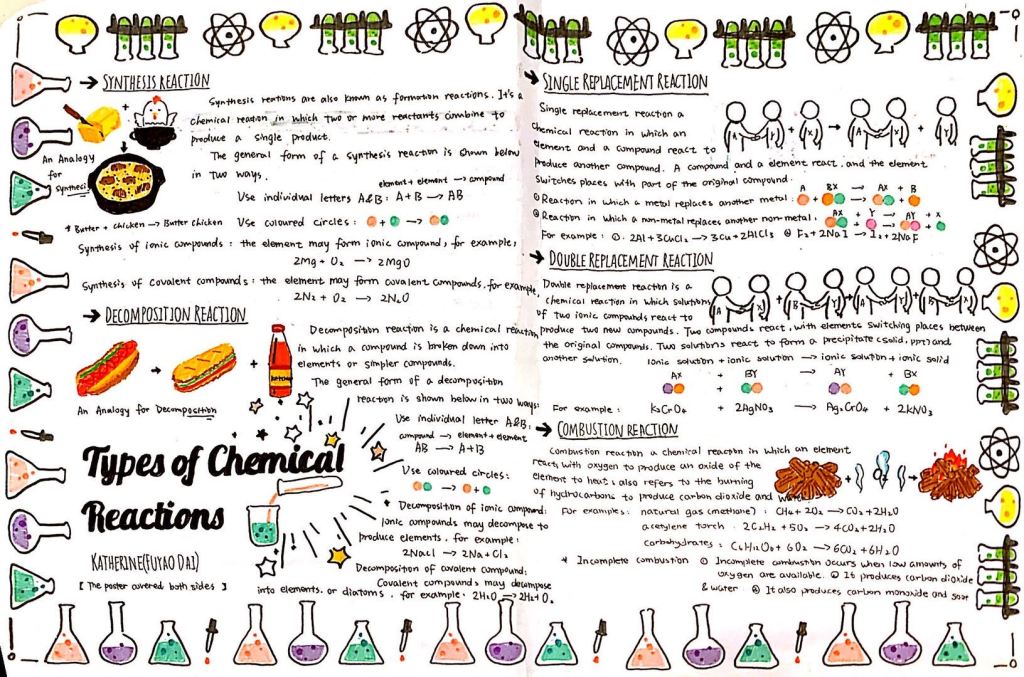 → SYNTHESIS REACTION
Synthesis reations are also known as formation reactions. It's a
chemical reation in which two or more reactants combine to
produce a single product.
The general form of a synthesis reaction is shown below
in two ways.
element + element → compound
Use individual letters A&B: A + B → AB
Use coloured circles: + →
+
An Analogy
for
Synthesis
* Butter + chicken → Butter chicken
Synthesis of ionic compounds : the element may form ionic compound, for example,
2Mg + O₂ → 2MgO
Synthesis of Covalent compounds : the element may form covalent compounds, for example,
2N₂ + O₂ → 2N₂O
→ DECOMPOSITION REACTION
Decomposition reaction is a chemical reaction
in which a compound is broken down into
elements or simpler compounds.
The general form of a decomposition
reaction is shown below in two ways:
→ +
KETCHUP
An Analogy for Decomposition
Use individual letter A&B:
compound → element + element
AB → A + B
Use coloured circles:
→ +
* Decomposition of ionic compound:
Ionic compounds may decompose to
produce elements. for example:
2NaCl → 2Na + Cl₂
Decomposition of covalent compound:
Covalent compounds may decompose
into elements. or diatoms. for example: 2H₂O → 2H₂ + O₂
Types of Chemical
Reactions
KATHERINE(FUYAO DAI)
[ The poster covered both sides ]
→ SINGLE REPLACEMENT REACTION
Single replacement reaction a
chemical reaction in which an
element and a compound react to
produce another compound. A compound and a element react. and the element
switches places with part of the original compound.
A X + Y → A Y + X
A BX AX + B
① Reaction in which a metal replaces another metal : + → +
AX + Y → AY + X
② Reaction in which a non-metal replaces another non-metal : + → +
For example : ①. 2Al + 3CuCl₂ → 3Cu + 2AlCl₃ ② F₂ + 2NaI → I₂ + 2NaF
→ DOUBLE REPLACEMENT REACTION
Double replacement reaction is a
chemical reaction in which solutions
of two ionic compounds react to
produce two new compounds. Two compounds react, with elements switching places between
the original compounds. Two solutions react to form a precipitate (solid, ppt) and
another solution.
A X + B Y → A Y + B X
Ionic solution + ionic solution → ionic solution + ionic solid
AX + BY → AY + BX
+ → +
For example : K₂CrO₄ + 2AgNO₃ → Ag₂CrO₄ + 2KNO₃
→ COMBUSTION REACTION
Combustion reaction a chemical reaction in which an element
react with oxygen to produce an oxide of the
element to heat; also refers to the burning
of hydrocarbons to produce carbon dioxide and
+ →
For examples: natural gas (methane) : CH₄ + 2O₂ → CO₂ + 2H₂O
acetylene torch . 2C₂H₂ + 5O₂ → 4CO₂ + 2H₂O
carbohydrates : C₆H₁₂O₆ + 6O₂ → 6CO₂ + 6H₂O
* Incomplete combustion ① Incomplete combustion occurs when low amounts of
oxygen are available. ② It produces carbon dioxide
& water ③ It also produces carbon monoxide and soot